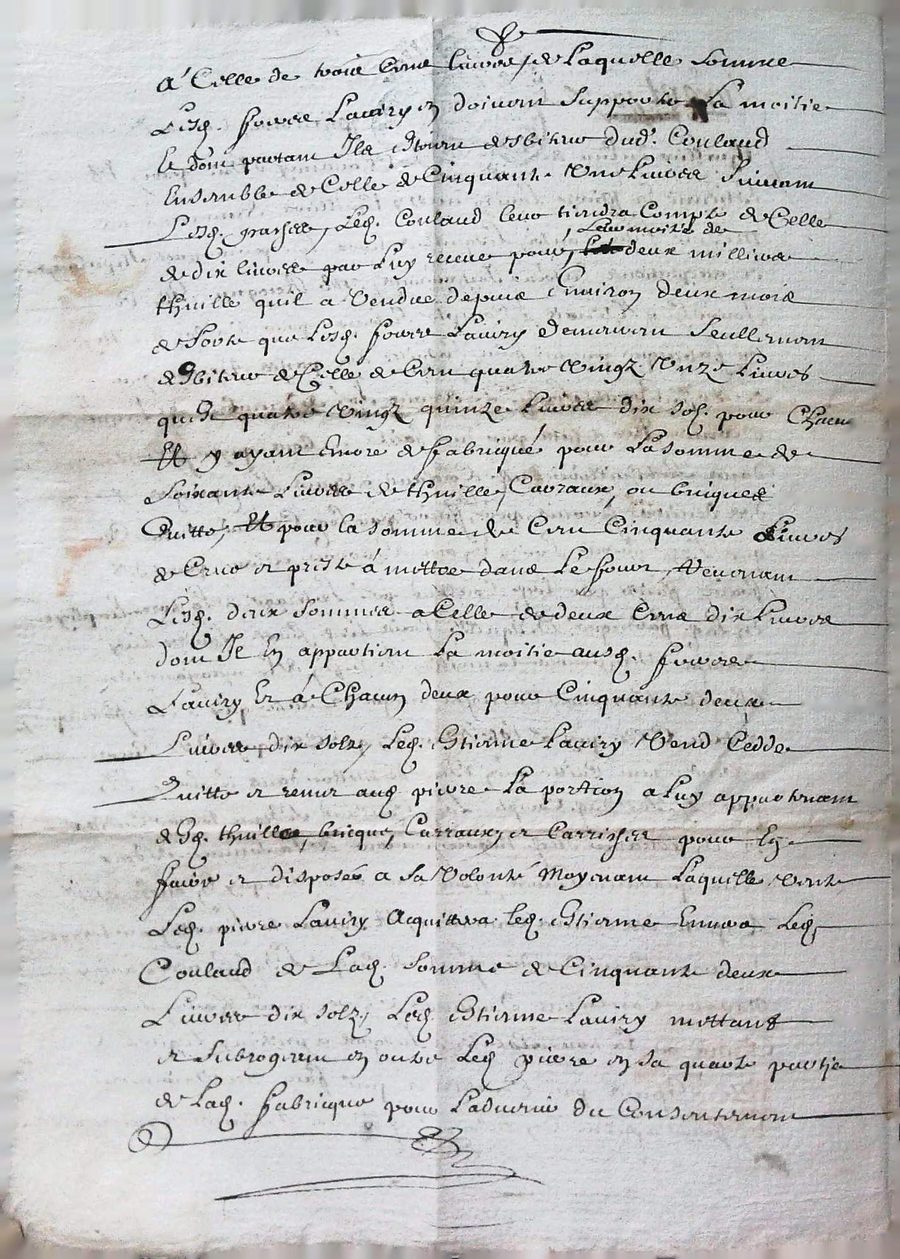 a Celle de trois Cent livres, de Laquelle Somme
Lesd. freres Lauiry en doivent Supporter La moitie
le dont partant Ils estoient debiteurs dud. Couland
Ensemble de Celle de Cinquante Une Livres Suivant
Lesd. Led. Couland leur tiendra Compte de Celle
Leur moitié de
de dix livres par Luy receue pour deux milliers
thuille quil a Vendue depuis Environ deux mois
de Sorte que Lesd. freres Lauiry demeurent Seullement
debiteurs de Celle de Cent quatre Vingt Unze Livres
quest quatre Vingt quinze Livres dix sols pour Chacun
Et y ayant Encore de fabriqué pour La somme de
Soixante Livres de thuille, Carraux, ou briques
Cuitte, Et pour la somme de Cent Cinquante Livres
de Crue et preste à mettre dans Le four, Revenant
Lesd. deux sommes a Celle de deux Cent dix Livres
dont Il En appartient La moitie ausd. freres
Lauiry Et à Chacun deux pour Cinquante deux
Livres dix solz, Led. Estienne Lauiry Vend Cedde
Quitte et remet aud. pierre La portion a Luy appartenant
desd. thuilles, bricques, Carraux, et Carrisses pour En
faire et disposer a Sa Volonté Moyenant Laquelle Vente
Led. pierre Lauiry Acquittera led. Estienne Envers Led.
Couland de Lad. Somme de Cinquante deux
Livres dix solz, Led. Estienne Lauiry mettant
et Subrogeant en outre Led. pierre en sa quarte partie
de Lad. fabricque pour Ladvenir du Consentement